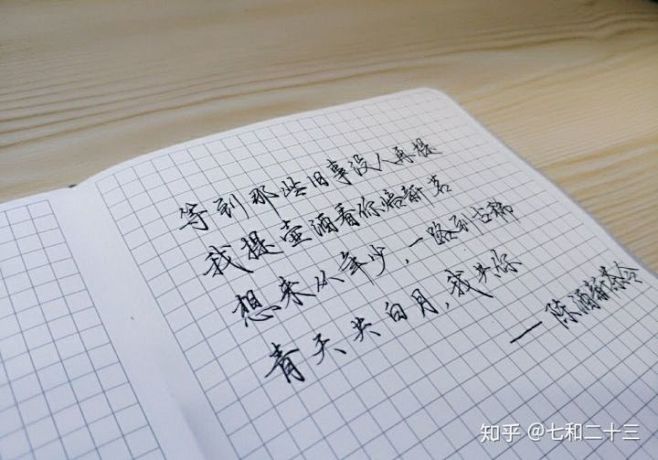 等到那些旧事没人再提
我提壶酒看你焙新茗
想来从年少，一路到古稀
青天共白月，我共你
— 陈酒新茶令
知乎 @七和二十三